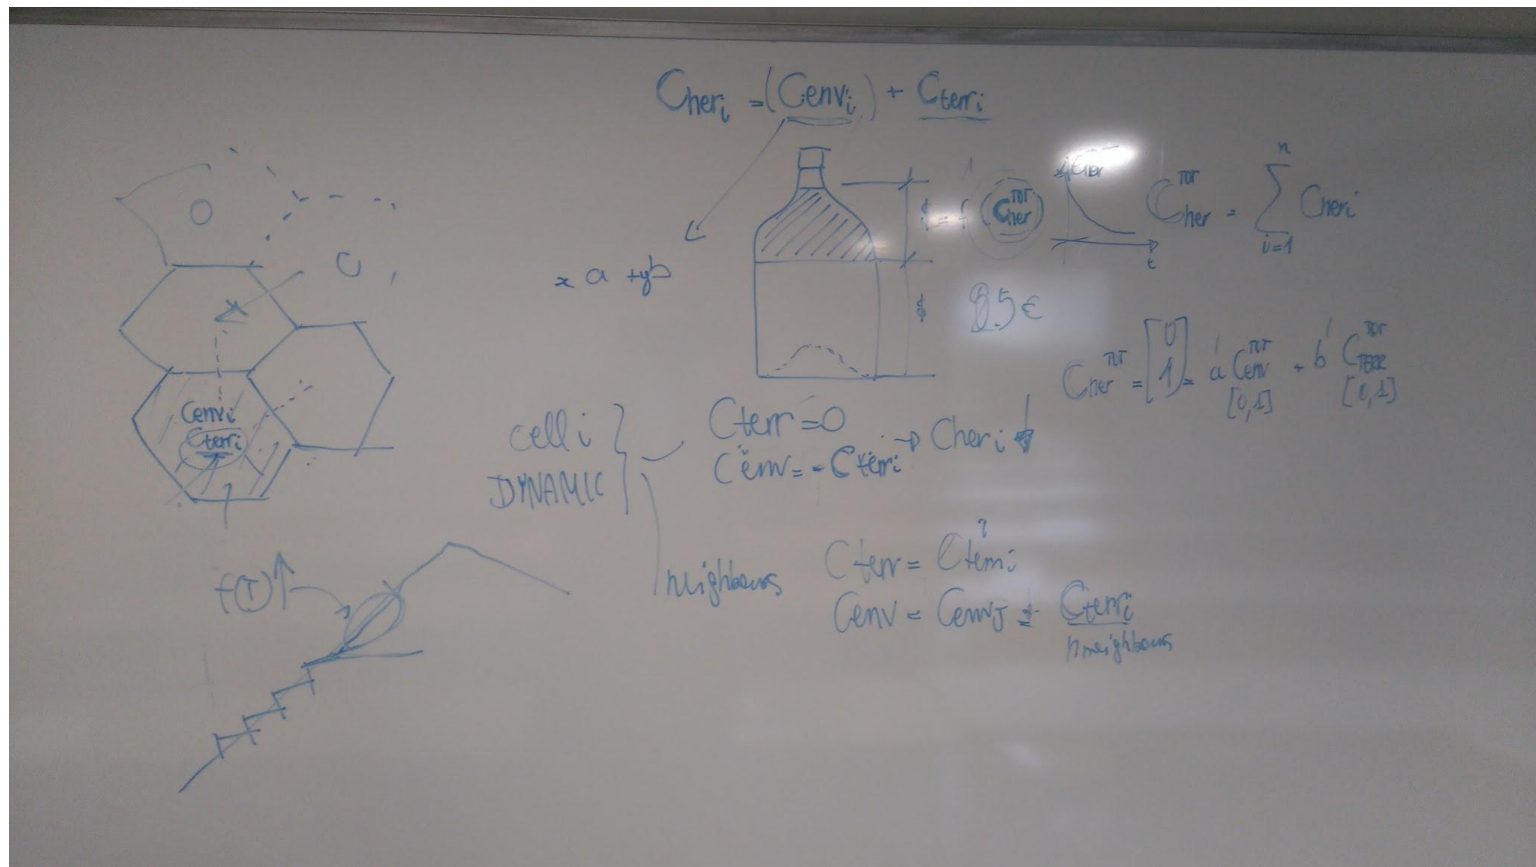 Cheri = (Cenvi) + Cterri
O
x a + yb
$ = f (Cher TOT)
Cher
t
Cher TOT = Σ n i=1 Cheri
85€
$
Cher TOT = [0 1] = a' Cenv TOT + b' CTERR TOT
[0,1] [0,1]
Cenvi
Cterri
cell i
DYNAMIC
Cterr = 0
Cenv = - Cterri → Cheri ↓
f(T)↑
neighbours
Cterr = Cterri
Cenv = CenvJ + Cterri
n neighbours